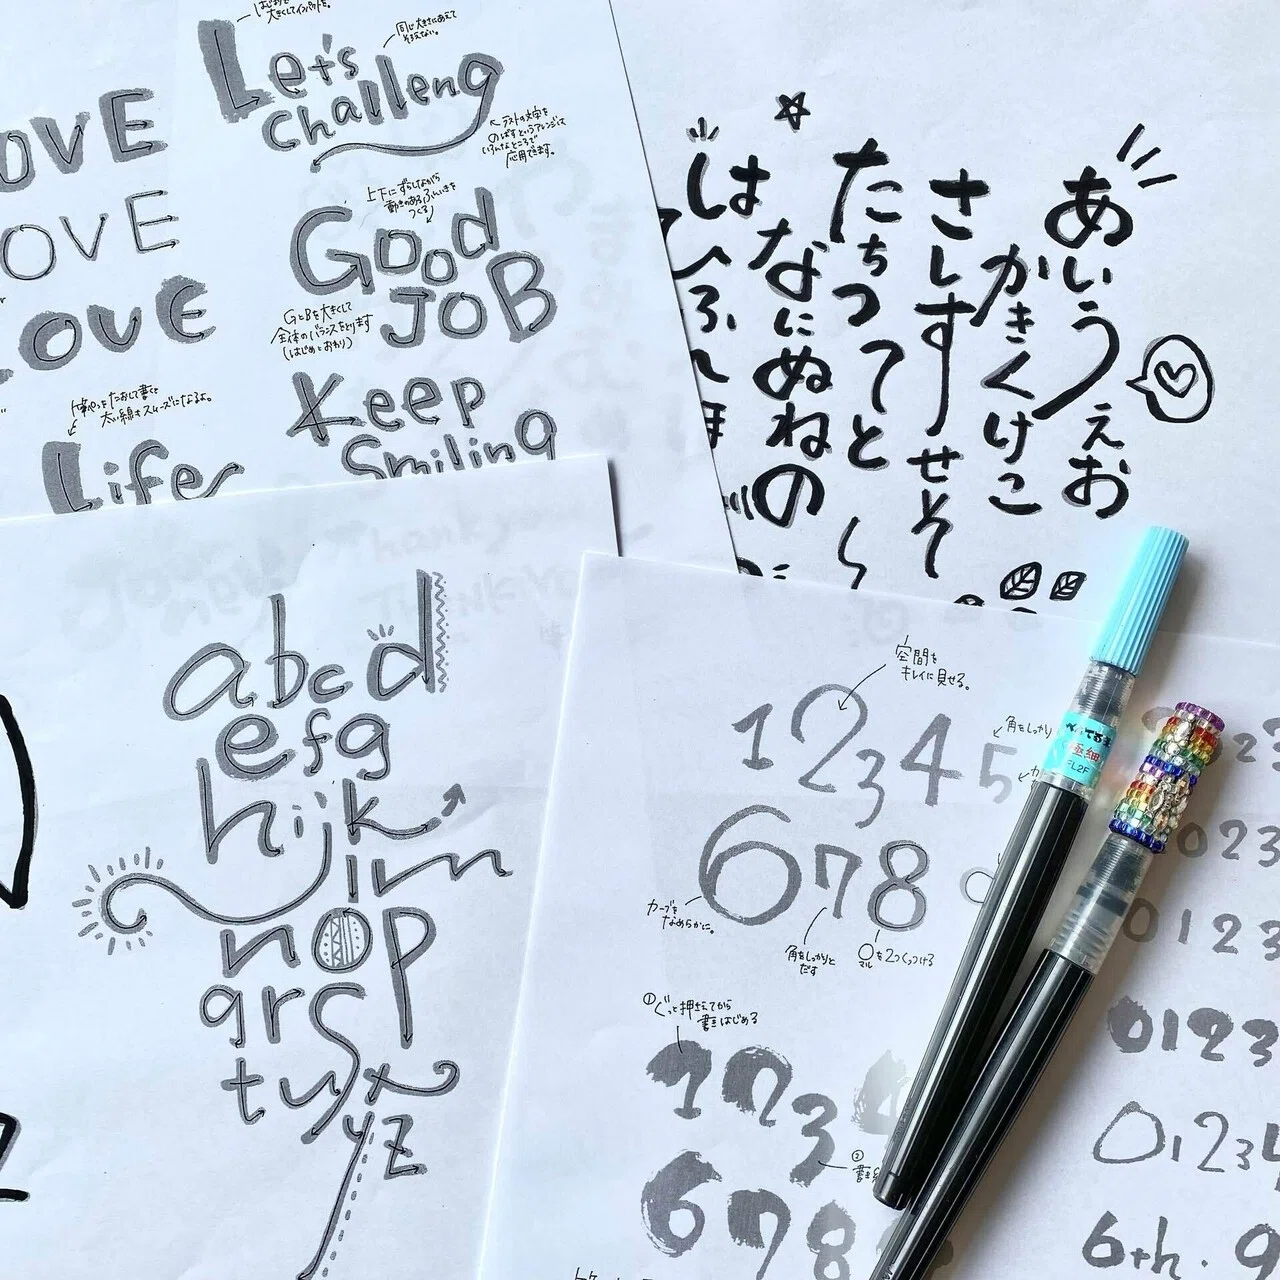 大きくしてインパクトを。
Let's
Challeng
同じ大きさにあえて
そろえない。
ラストの文字を
のばすというアレンジは
いろんなところで
応用できます。
OVE
OVE
LOVE
上下にずらしながら
動きのあるふんいきを
つくる
Good
JOB
GとBを大きくして
全体のバランスをとります
(はじめとおわり)
Keep
Smiling
太い線もスムーズになるよ。
Life
あいうえお
かきくけこ
さしすせそ
たちつてと
なにぬねの
は
abcd
efg
hijk
lm
nop
qrs
tuvx
yz
空間を
キレイに見せる。
1 2 3 4 5
角をしっかり
6 7 8 9
カーブを
なめらかに。
角をしっかりと
だす
○を2つくっつける
マル
①ぐっと押えてから
書きはじめる
1 2 3 4
②
6 7 8
極細
FL2F
0 2 3
0 1 2 3
0 1 2 3
0 1 2 3 4
6th. 9